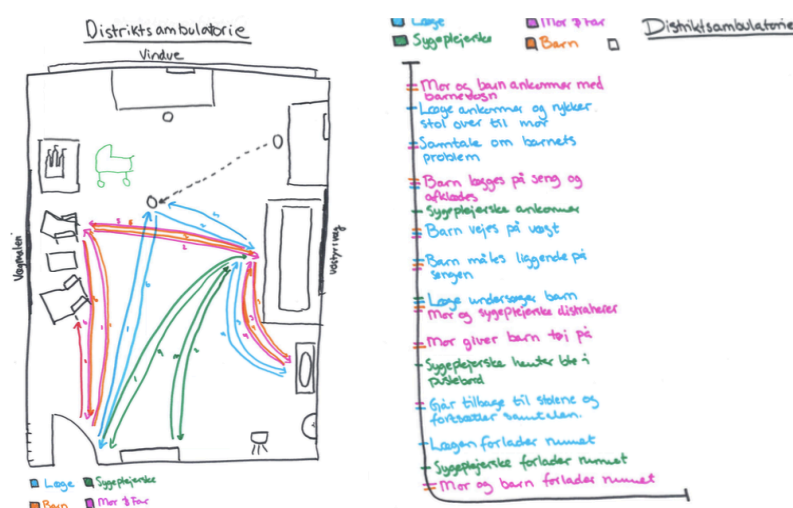 Distriktsambulatorie
Vindue
Vægmaleri
Læge
Sygeplejerske
Barn
Mor & Far
Læge
Mor & Far
Sygeplejerske
Barn
Distriktsambulatorie
Mor og barn ankommer med
barnevogn
Læge ankommer og rykker
stol over til mor
Samtale om barnets
problem
Barn lægges på seng og
afklædes
Sygeplejerske ankommer
Barn vejes på vægt
Barn måles liggende på
sengen
Læge undersøger barn
Mor og sygeplejerske distraherer
Mor giver barn tøj på
Sygeplejerske henter ble i
puslebord
Går tilbage til stolene og
fortsætter samtalen.
Lægen forlader rummet
Sygeplejerske forlader rummet
Mor og barn forlader rummet